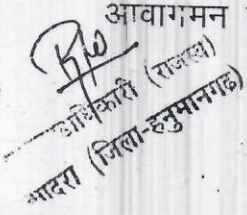 आवागमन
अधिकारी (राजस्व)
भादरा (जिला-हनुमानगढ)